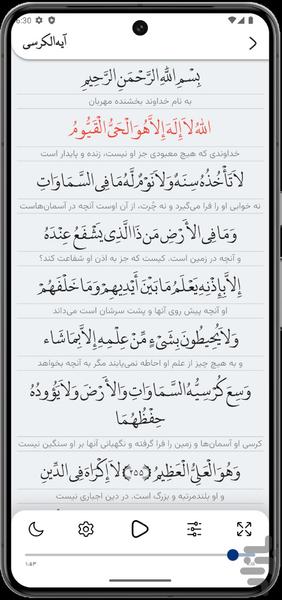 6:30
آیه‌الکرسی
بِسْمِ اللَّهِ الرَّحْمَنِ الرَّحِيمِ
به نام خداوند بخشنده مهربان
اللَّهُ لَا إِلَهَ إِلَّا هُوَ الْحَيُّ الْقَيُّومُ
خداوندی که هیچ معبودی جز او نیست، زنده و پایدار است
لَا تَأْخُذُهُ سِنَةٌ وَلَا نَوْمٌ لَّهُ مَا فِي السَّمَاوَاتِ
نه خوابی او را فرا می‌گیرد و نه چُرت، از آن اوست آنچه در آسمان‌هاست
وَمَا فِي الْأَرْضِ مَن ذَا الَّذِي يَشْفَعُ عِنْدَهُ
و آنچه در زمین است. کیست که جز به اذن او شفاعت کند؟
إِلَّا بِإِذْنِهِ يَعْلَمُ مَا بَيْنَ أَيْدِيهِمْ وَمَا خَلْفَهُمْ
او آنچه پیش روی آنها و پشت سرشان است می‌داند
وَلَا يُحِيطُونَ بِشَيْءٍ مِّنْ عِلْمِهِ إِلَّا بِمَا شَاءَ
و به هیچ چیز از علم او احاطه نمی‌یابند مگر به آنچه بخواهد
وَسِعَ كُرْسِيُّهُ السَّمَاوَاتِ وَالْأَرْضَ وَلَا يَؤُودُهُ
حِفْظُهُمَا
کرسی او آسمان‌ها و زمین را فرا گرفته و نگهبانی آنها بر او سنگین نیست
وَهُوَ الْعَلِيُّ الْعَظِيمُ ﴿٢٥٥﴾ لَا إِكْرَاهَ فِي الدِّينِ
و او بلندمرتبه و بزرگ است. در دین اجباری نیست
۱:۵۳